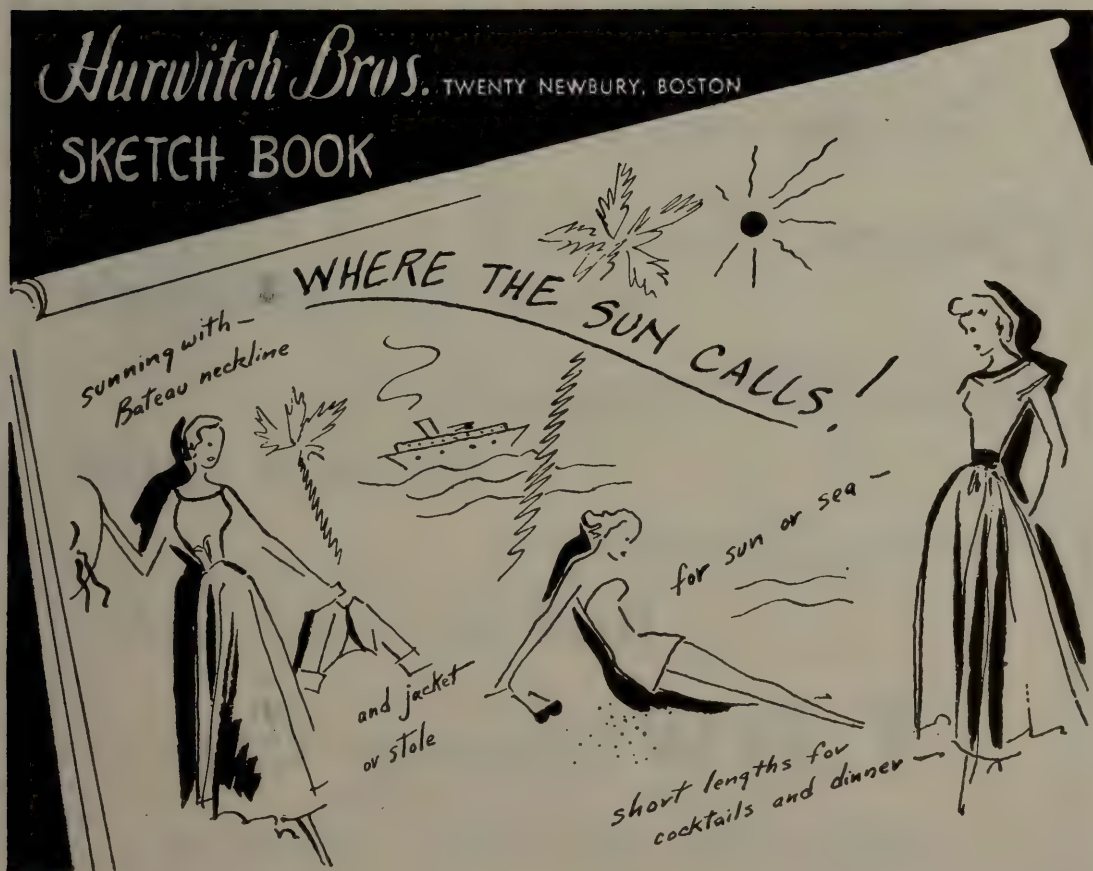 Hurwitch Bros. TWENTY NEWBURY, BOSTON
SKETCH BOOK
WHERE THE SUN CALLS!
sunning with—
Bateau neckline
and jacket
or stole
for sun or sea—
short lengths for
cocktails and dinner—